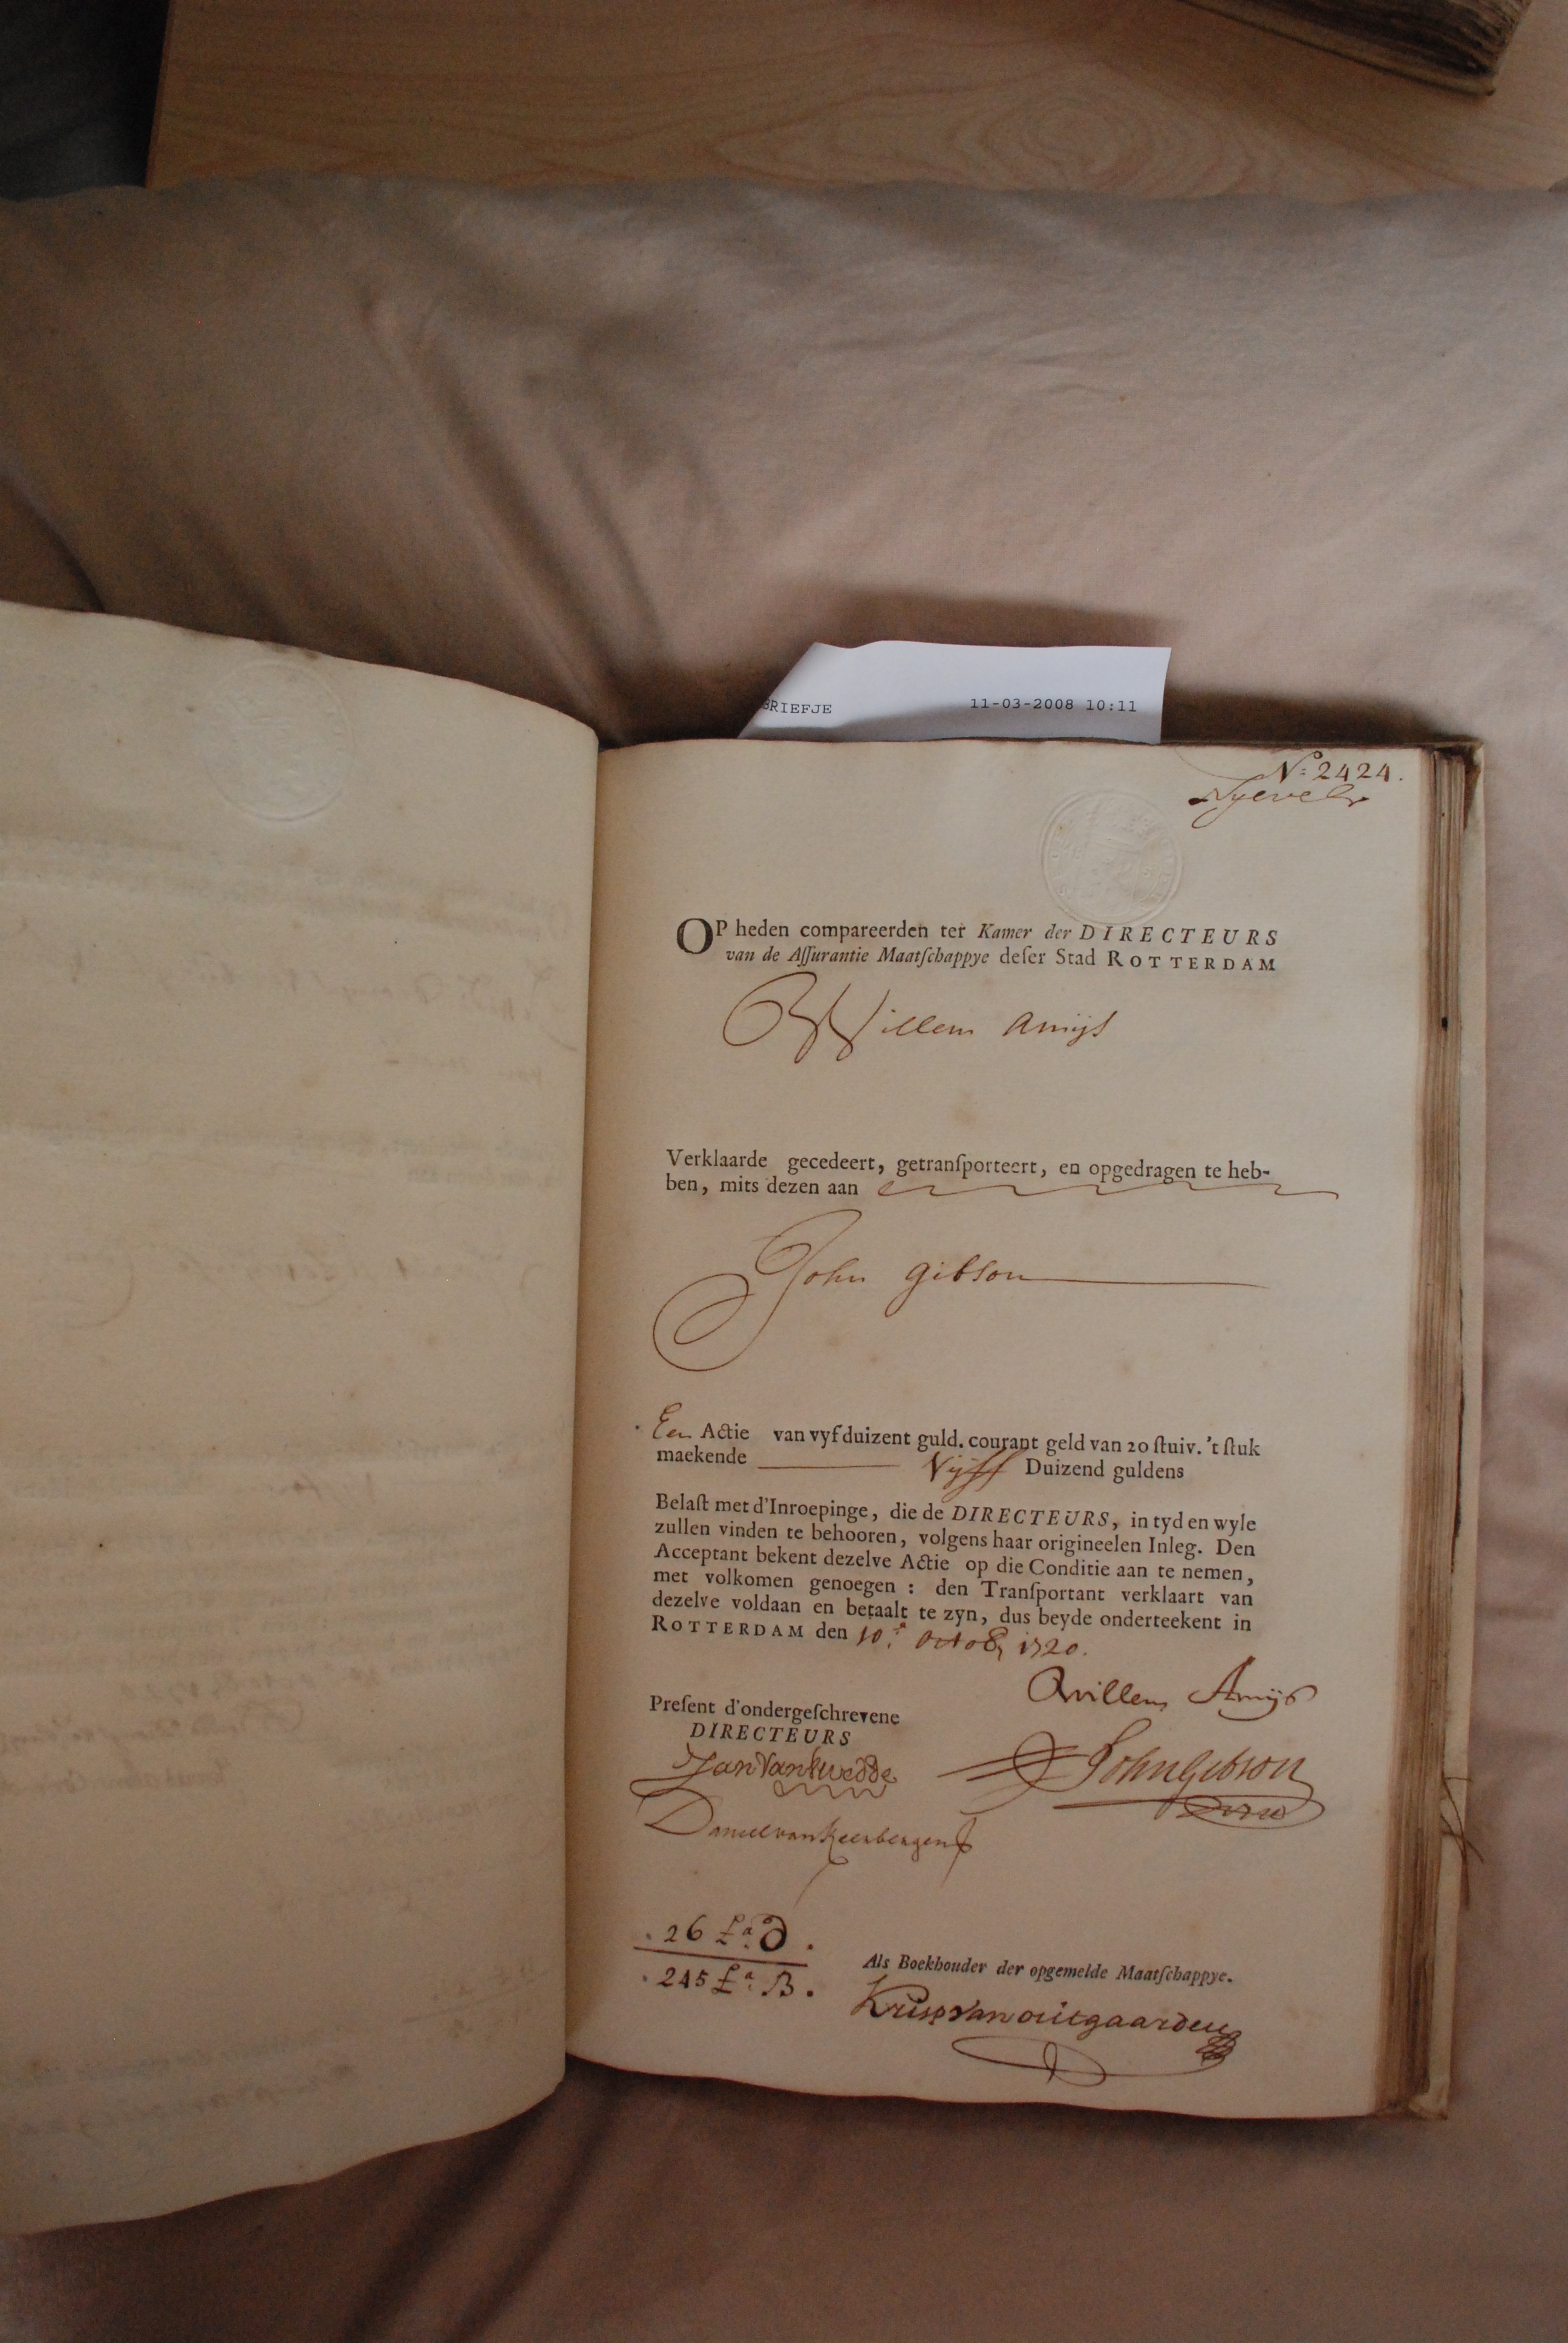 BRIEFJE 11-03-2008 10:11
No: 2424.
OP heden compareerden ter Kamer der DIRECTEURS
van de Aſſurantie Maatſchappye deſer Stad ROTTERDAM
Willem Amijs
Verklaarde gecedeert, getranſporteert, en opgedragen te heb-
ben, mits dezen aan
John Gibson
Een Actie van vyf duizent guld. courant geld van 20 ſtuiv. 't ſtuk
maekende Vyff Duizend guldens
Belaſt met d'Inroepinge, die de DIRECTEURS, in tyd en wyle
zullen vinden te behooren, volgens haar origineelen Inleg. Den
Acceptant bekent dezelve Actie op die Conditie aan te nemen,
met volkomen genoegen : den Tranſportant verklaart van
dezelve voldaan en betaalt te zyn, dus beyde onderteekent in
ROTTERDAM den 10. Octob, 1720.
Willem Amijs
Preſent d'ondergeſchrevene
DIRECTEURS
Jan Van
John Gibson
Daniel van Keerbergen
26 La D.
245 La B.
Als Boekhouder der opgemelde Maatſchappye.
Krisp Van outgaarden